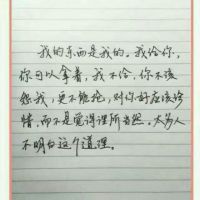 我的东西是我的。我给你，
你可以拿着，我不给，你不该
怨我，更不能抢，别你好应该珍
惜，而不是觉得理所当然。太多人
不明白这个道理。